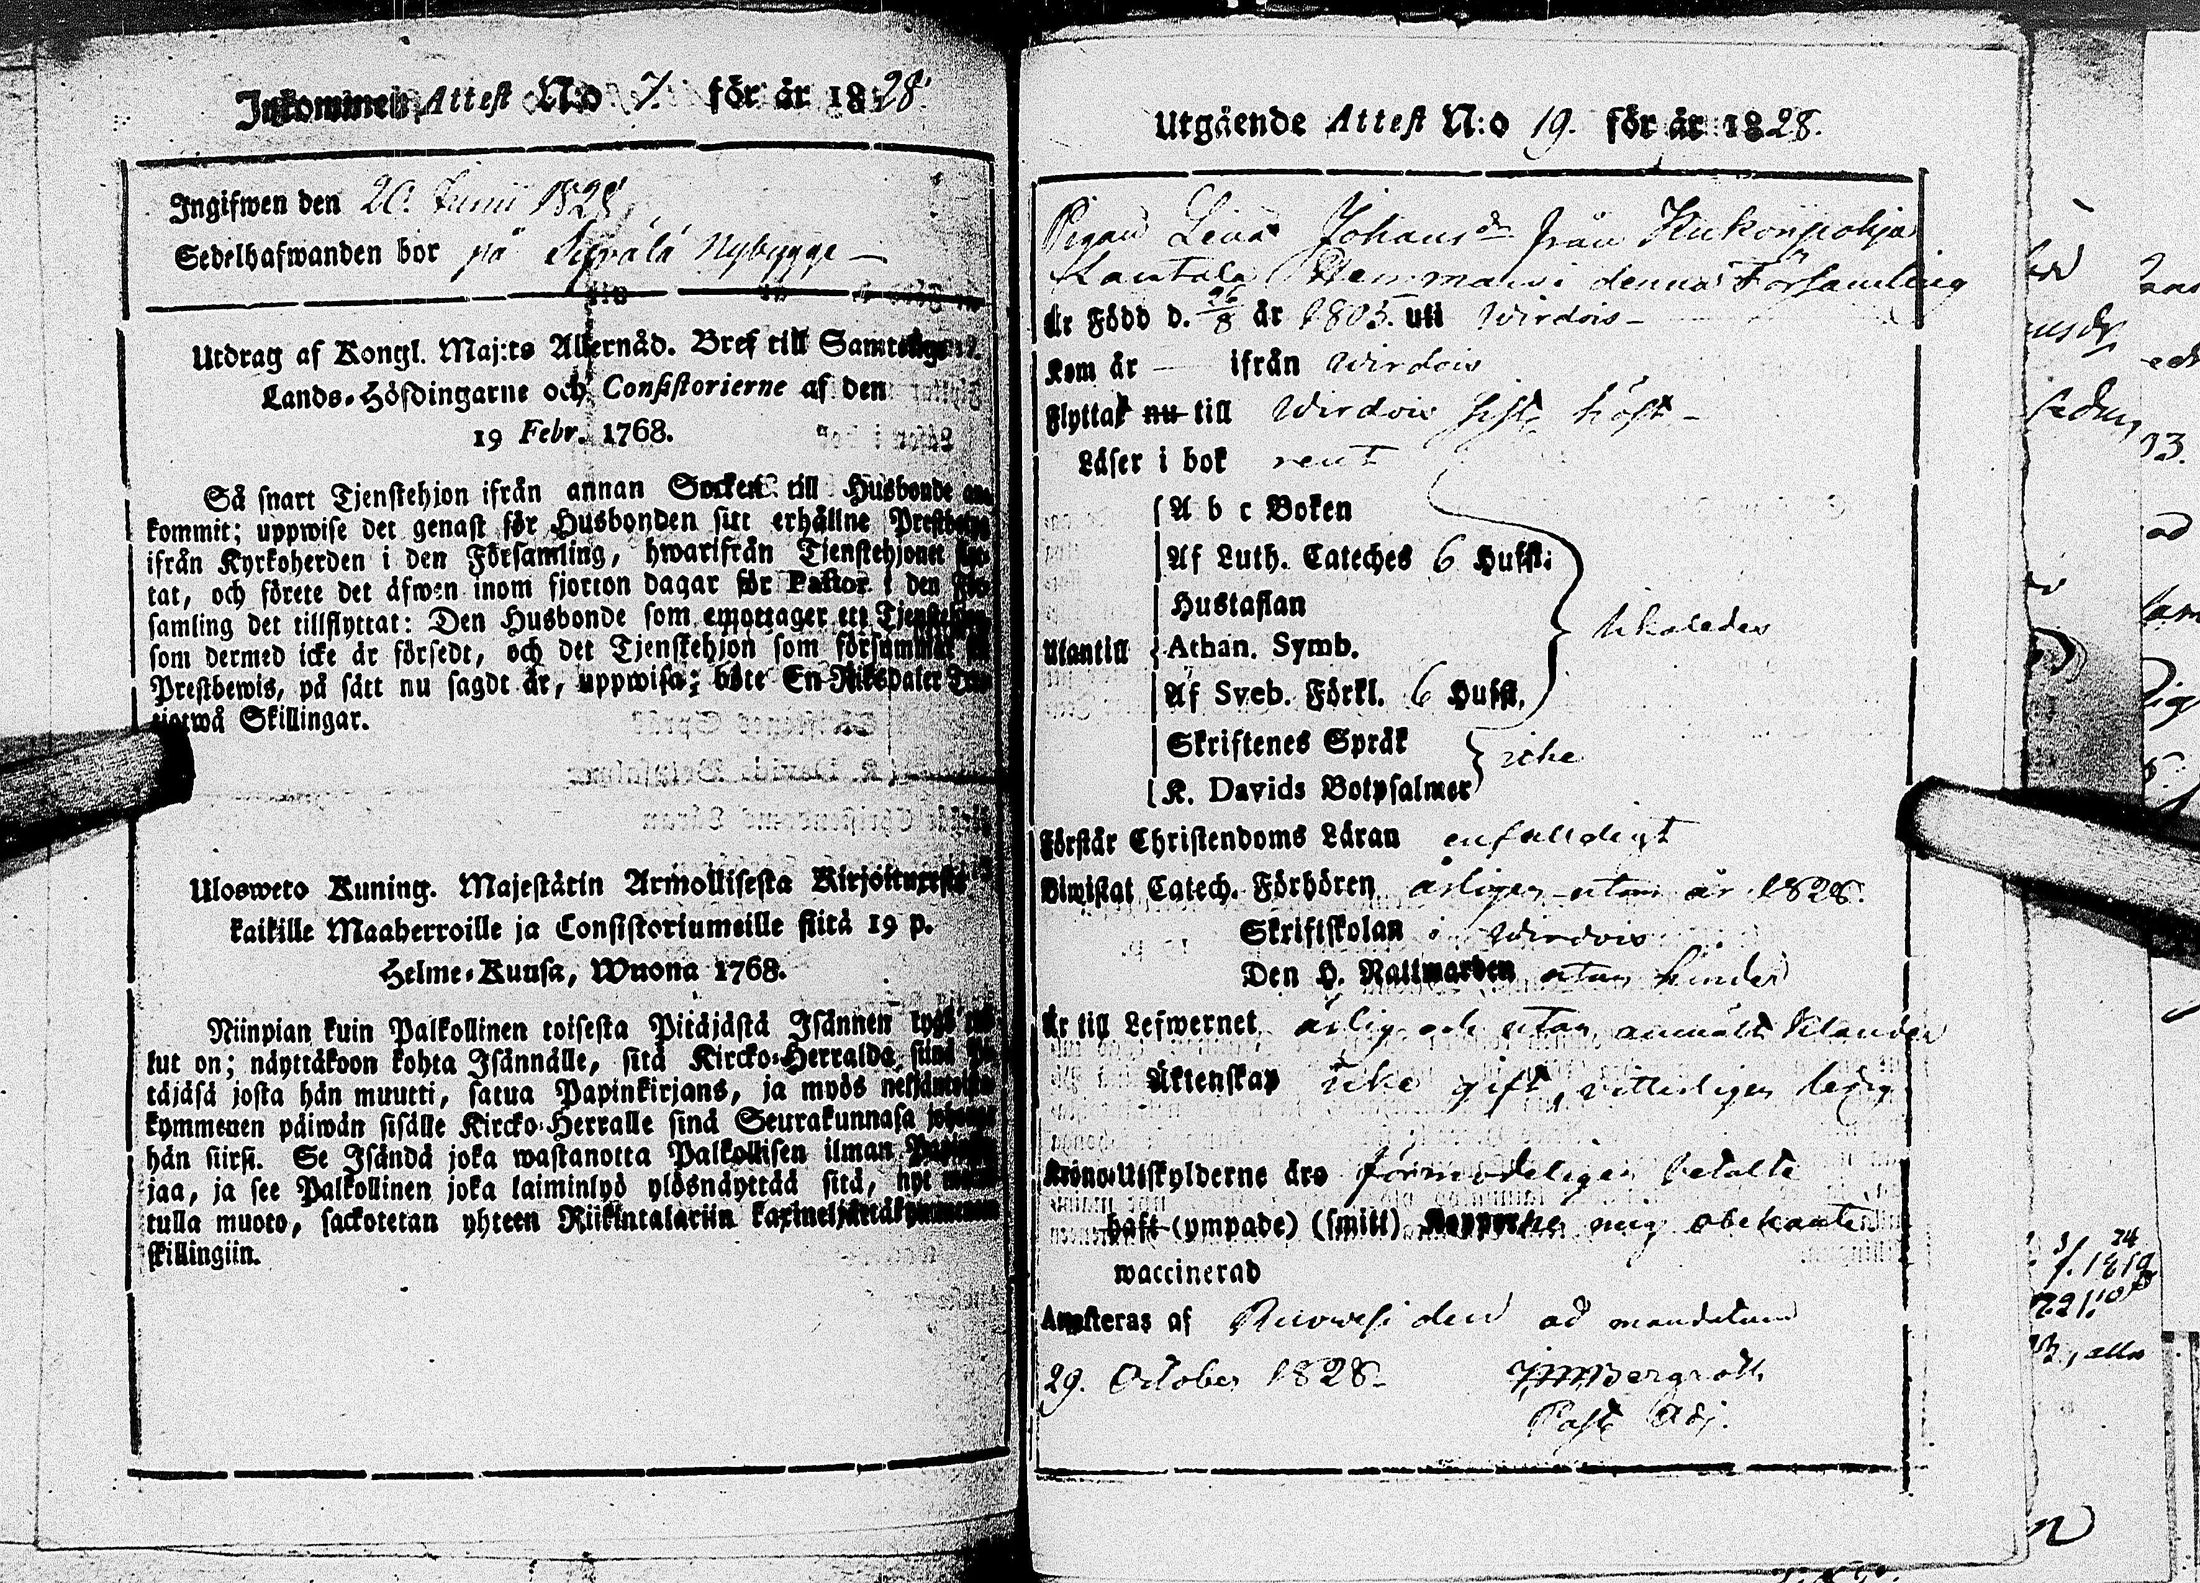 Inkommen Attest N:o 7. för år 1828.
Ingifwen den 20. Junii 1828
Sedelhafwanden bor på Nybygge –
Utdrag af Kongl. Maj:ts Allernåd. Bref till Samtelige
Lands-Höfdingarne och Consistorierne af den
19 Febr. 1768.
Så snart Tjenstehjon ifrån annan Socken till Husbonde an-
kommit; uppwise det genast för Husbonden sitt erhållne Prestbewis
ifrån Kyrkoherden i den Församling, hwarifrån Tjenstehjonet flyt-
tat, och förete det äfwen inom fjorton dagar för Pastor i den För-
samling det tillflyttat: Den Husbonde som emottager ett Tjenstehjon,
som dermed icke är försedt, och det Tjenstehjon som försummar
Prestbewis, på sätt nu sagdt är, uppwisa; böte En Riksdaler
tiotwå Skillingar.
Ulosweto Kuning. Majestätin Armollisesta Kirjoituxesta
kaikille Maaherroille ja Consistoriumeille siitä 19 p.
Helme-Kuusa, Wuona 1768.
Niinpian kuin Palkollinen toisesta Pitäjästä Isännen tygö tul-
lut on; näyttäköön kohta Isännälle, sitä Kircko-Herralda siinä Pi-
täjäsä josta hän muutti, satua Papinkirjans, ja myös neljäntoista-
kymmenen päiwän sisälle Kircko-Herralle sinä Seurakunnasa johonga
hän siirsi. Se Isändä joka wastanotta Palkollisen ilman Papinkir-
jaa, ja see Palkollinen joka laiminlyö ylösnäyttää sitä, nyt
tulla muoto, sackotetan yhteen Riikintalariin kaximeljättäkymmenen
skillingiin.
Utgående Attest N:o 19. för år 1828.
Pigan Lena Johansdr från Kukonpohja
Kautala Hemman i denna Församling
Är Född d. 26/8 år 1805. uti Wirdois –
Kom år — ifrån Wirdois
Flyttat nu till Wirdois sistl. höst –
Läser i bok rent
A b c Boken
Af Luth. Cateches 6 Hufst.
Hustaflan
likaledes
Utantill Athan. Symb.
Af Sveb. Förkl. 6 Hufst.
Skriftenes Språk
icke
K. Davids Botpsalmer
Förstår Christendoms Läran enfalldigt
Biwistat Catech. Förhören årligen utom år 1828.
Skriftskolan i Wirdois
Den H. Nattwarden utan hinder
Är till Lefwernet ärlig och utan anmält klander
Äktenskap icke gift, vitterligen ledig
Krono-Utskylderne äro förmodeligen betalte
haft (ympade) (smitt) Kopporne mig obekante
waccinerad
Attesteras af Ruowesi den ad mandatum
29. October 1828. Bergroth
Past. Adj.